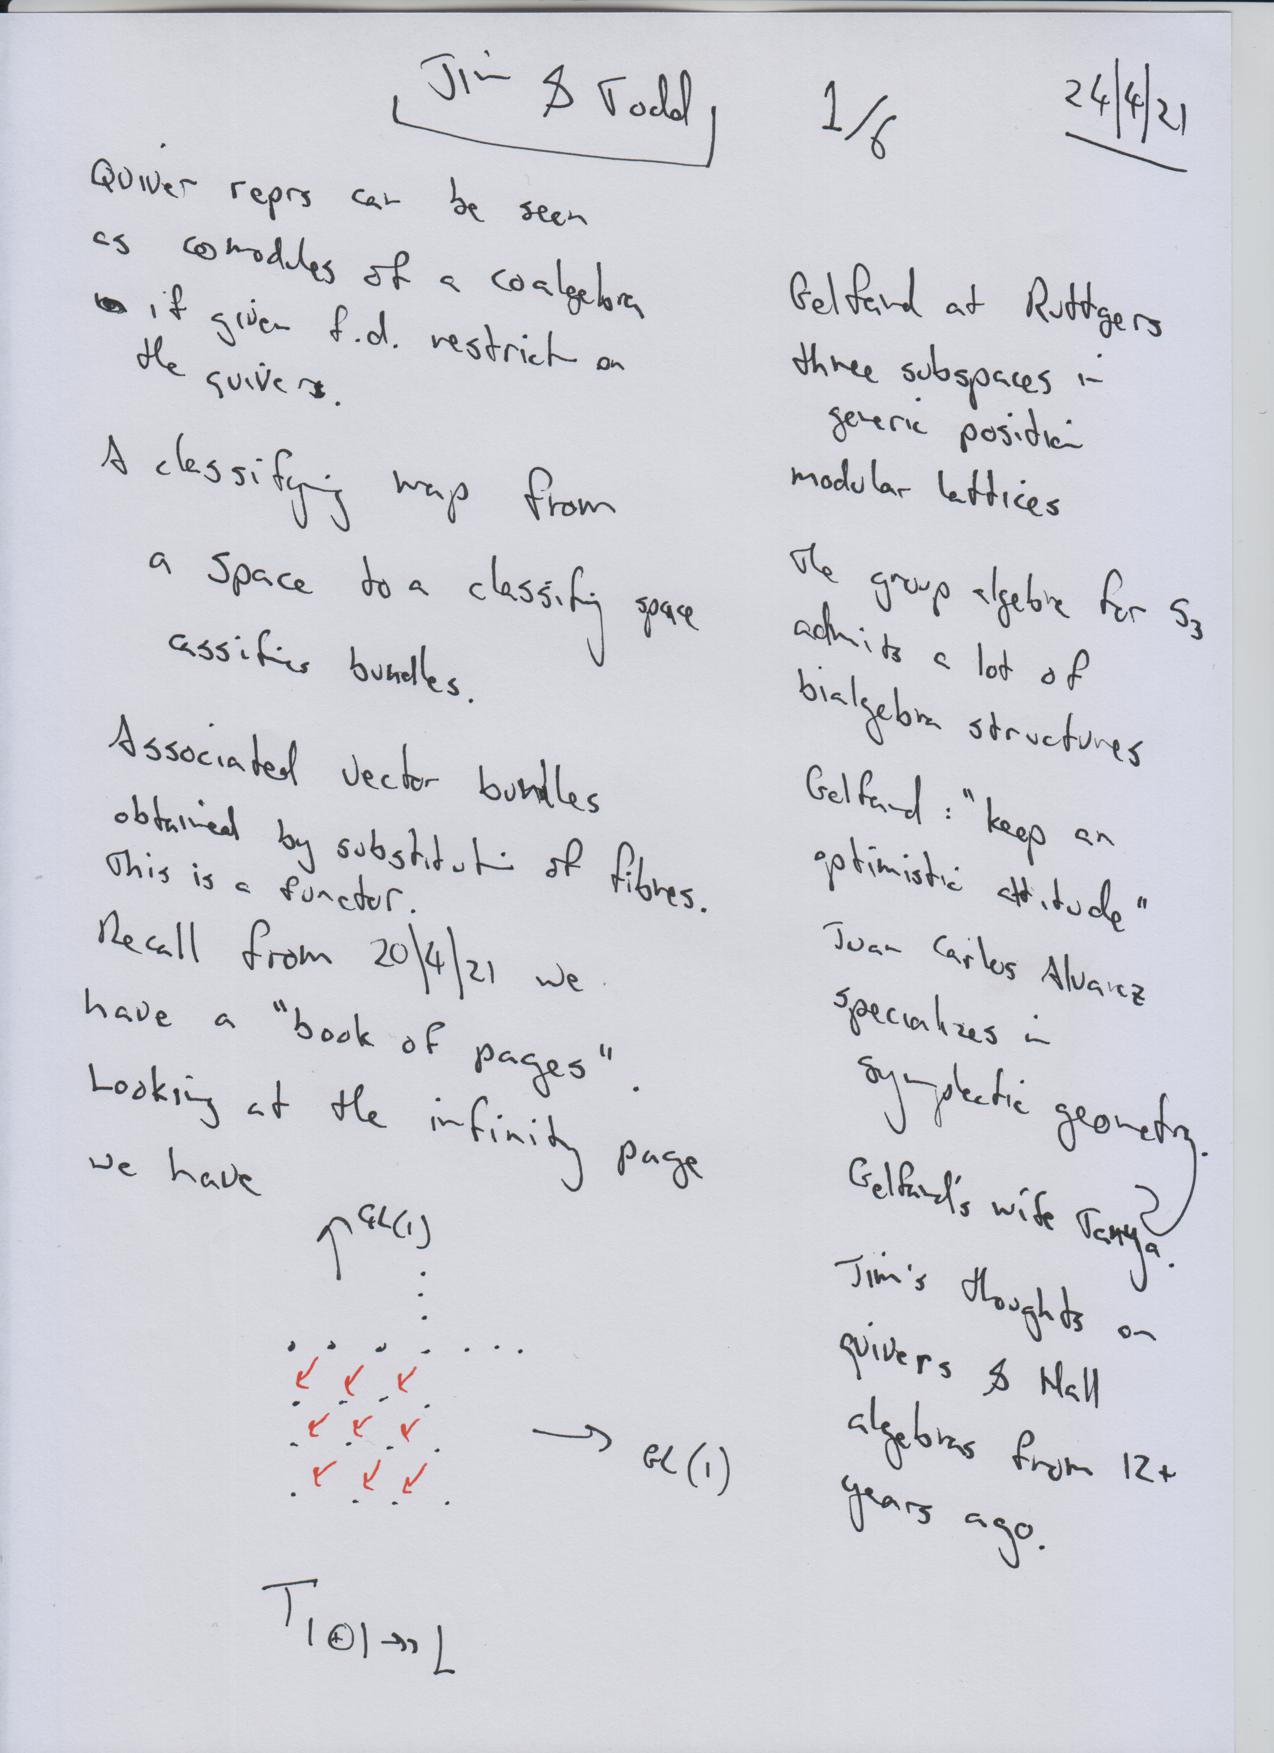 Jim & Todd 1/6 24/4/21
Quiver reprs can be seen
as comodules of a coalgebra
if given f.d. restrict on
the quivers.
A classifying map from
a space to a classifing space
cassifies bundles.
Associated vector bundles
obtained by substitution of fibres.
This is a functor.
Recall from 20/4/21 we
have a "book of pages".
Looking at the infinity page
we have
GL(1)
GL(1)
T1⊕1↠L
Gelfand at Ruttgers
three subspaces in
generic position
modular lattices
The group algebra for S3
admits a lot of
bialgebra structures
Gelfand : "keep an
optimistic attitude"
Juan Carlos Alvarez
specializes in
symplectic geometry.
Gelfand's wife Tanya.
Jim's thoughts on
quivers & Hall
algebras from 12+
years ago.